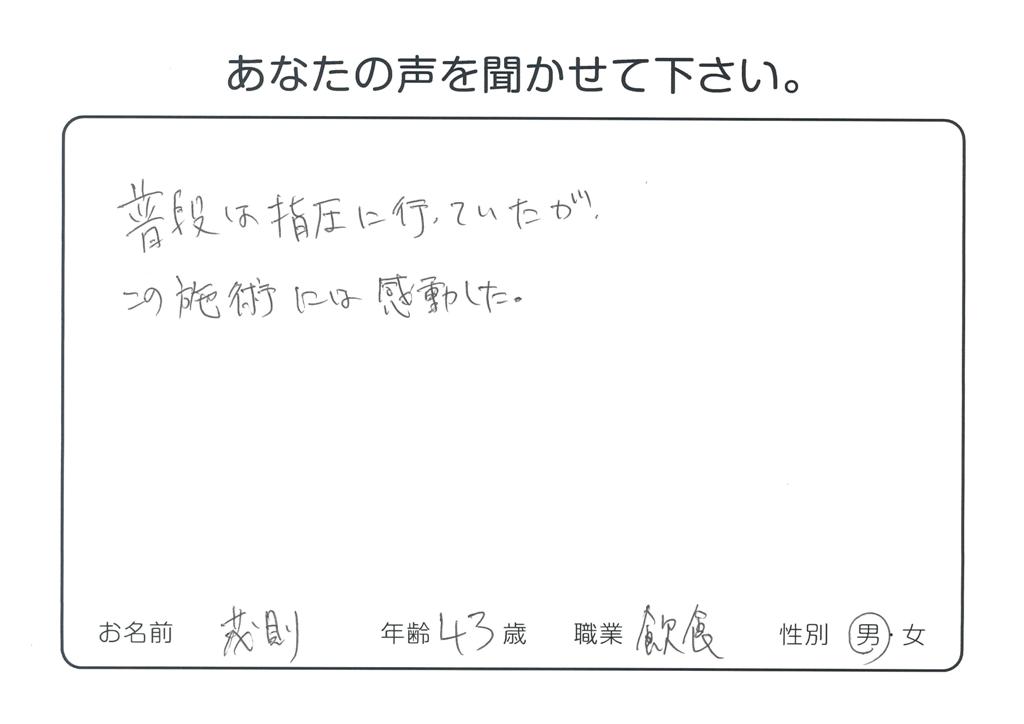 あなたの声を聞かせて下さい。
普段は指圧に行っていたが、
この施術には感動した。
お名前 茂則 年齢 43 歳 職業 飲食 性別 男・女